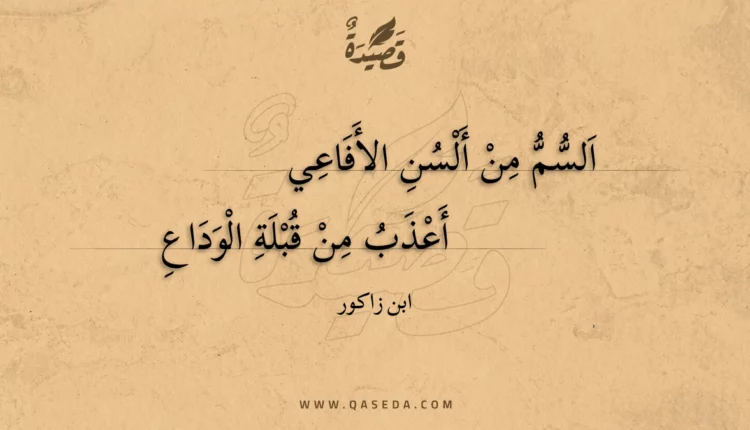 قَصِيْدَةٌ
اَلسُّمُّ مِنْ أَلْسُنِ الأَفَاعِي
أَعْذَبُ مِنْ قُبْلَةِ الْوَدَاعِ
ابن زاكور
WWW.QASEDA.COM